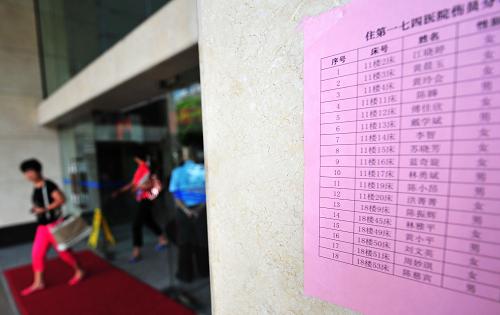 住第一七四医院伤员分
序号 床号 姓名 性别
1 11楼2床 江晓婷 女
2 11楼3床 黄晨玉 女
3 11楼4床 黄玲会 女
4 11楼11床
5 11楼12床 傅佳欣 女
6 11楼13床 戴学斌 男
7 11楼14床 李智
8 11楼15床 苏晓芳 女
9 11楼16床 蓝奇旋
10 11楼17床 林勇斌 男
11 11楼19床 陈小昂
12 11楼20床 洪菁菁 女
13 18楼9床 陈振辉 男
14 18楼45床 林雅平
15 18楼49床 黄小平
16 18楼50床 刘文英 女
17 18楼51床 周妙琪 女
18 18楼53床 陈慈宾 男